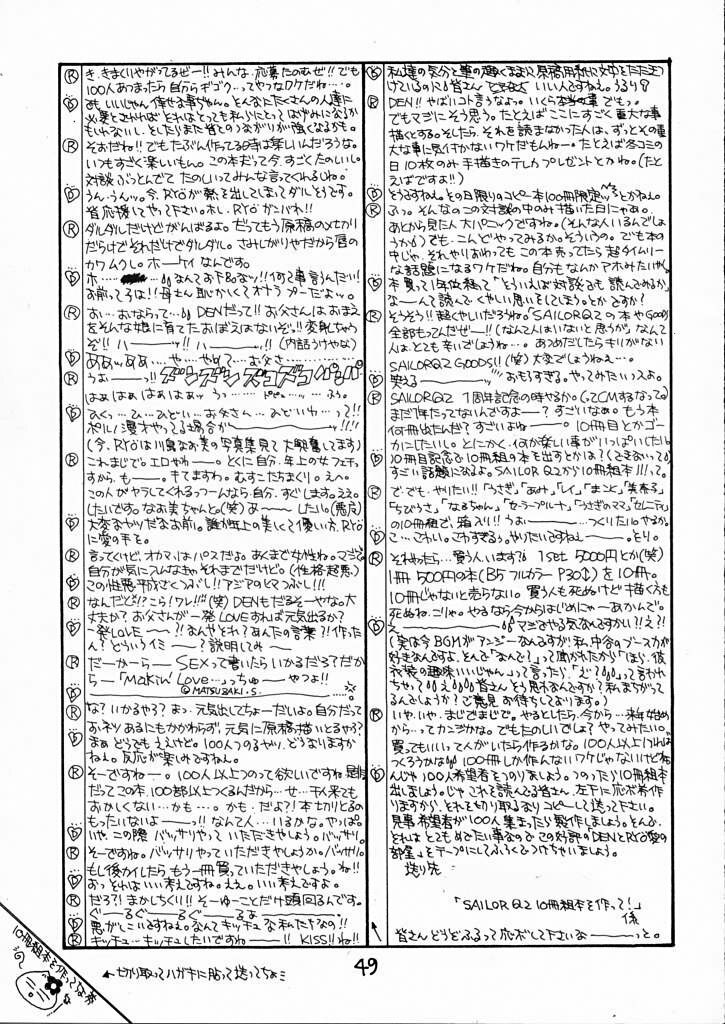 私達の気分と筆の運ぶままに原稿用紙に文中をただただ
けているのに皆さん
いいんですねえ。うるうる
DEN!! やばいコト言うなよっ。いくら本当の事でもっ。
でもマジにそう思う。たとえばここにすごく重大な事
描くとする。そしたら、それを読まなかった人は、ずっとその重
大な事に気付かないワケだもんねー。たとえば冬コミの
日10枚のみ手描きのテレカプレゼントとかね。(たと
えばですよ!!)
そうですねえ。その日限りのコピー本100冊限定ッとかねん。
ふっ。そんなのこの対談の中のみ描いた日にゃあの、
あとから見た人大パニックですね。(そんな人いるんでしょ
うか)でも、こんどやってみるか。そういうの。でも本の
中じゃ。それやりおわっても この本売ってたら超タイムリー
な話題になるワケだね。自分もなんかアホみたいやん。
本買って1年位積って「そういえば対談でも読んでみるか。
なーんて読んで くやしい思いをしてしまう。とかですか!
そうそう!!超くやしいだろうね。「SAILOR Q2の本やGoods
全部もってんだぜー!!(なんて人はいないと思うが)なんて
人は、とても辛いでしょうね…。あつめだしたらキリがない
SAILOR Q2 GOODS!!(笑)大変でしょうねぇ…。
笑えるー!!おもしろすぎる。やってみたいっスよ。
SAILOR Q2 1周年記念の時やるか。(Q2CMするなって。)
まだ1年たってないんですよー? すごいなぁ。もう本
何冊出たんだ? すごいよねー。10冊目とかゴー
カにしたいし。とにかく、何か楽しい事がいっぱいしたい。
10冊目記念で10冊組の本を出すとかは?(できないって)
すごい話題になるよ。SAILOR Q2から10冊組本!!って。
で・でも、やりたい!!「うさぎ」「あみ」「レイ」「まこと」「美奈子」
「ちびうさ」「なるちゃん」「セーラープルート」「うさぎのママ」「セレニティ」
の10冊組で、箱入り!!うぉーーつくりたい。やるか。
こ…こわい。こわすぎるぅ。やりたいですねえー。とり。
それやったら…買う人います? 1Set 5000円とか(笑)
1冊500円の本(B5フルカラーP30↑)を10冊。
10冊じゃないと売らない。買う人も死ぬけど描くんも
死ぬね。こりゃ。やるなら今からはじめにゃーあかんで。
えーーマジでやる気なんですかい?!え?!
(実は今BGMがアンジーなんですが、私、中谷のブースカが
好きなんですよ。そんで「なんで?」って聞かれたから「ほら、彼
衣装の趣味いいじゃん。」って言ったら、「ど?」って言われ
ちゃってえ皆さんそう思わないんですか? 私まちがっ
てるんでしょうか?ご意見 お待ちしております。)
いや、いや、まじでまじで。やるとしたら、今から…来年始め
から…ってカンジかな。でもたのしいでしょ? やってみたい。
買ってもいいって人がいたら作るかな。100人以上いれば
つくろうかな 100冊しか作んないワケじゃないけど
んじゃ100人希望者をつのりましょう。つのったら10冊組本
出しましょう。じゃこれを読んでる皆さん、左下に応ボ券作
りますから、それを切り取るなりコピーして送って下さい。
見事希望者が100人集まったら製作しましょう。そんで、
それはとてもめでたい事なので この好評の「DENとRYO愛の
部屋」をテープにしてふろくでつけちゃいましょう。
送り先
「SAILOR Q2 10冊組本を作って!」
係
皆さんどうどふるって応ボして下さいなーーっと。
き、きまくりやがってるぜー!! みんな、応募たのむぜ!! でも
100人あつまったら自分らギゴク…ってやつなワケだね…。
いいじゃん。倖せな事ぢゃん。そんなにたくさんの人達に
必要とされれば それはとっても私らにとってはげみになるか
もしれないし、そしたらまた皆とのつながりが強くなるかも。
そおだね!! でもたぶん作ってる時は楽しいんだろうな。
いつもすごく楽しいもん。この本だって今、すごくたのしいし。
対談ぶっとんでて たのしいってみんな言ってくれるしね。
うん、うんッ。今、RYOが熱を出してしまってダルそうです。
皆応援してやって下さい。ホレ、RYOガンバれ!!
ダルダルだけどがんばるよ。だってもう原稿の〆切り
だらけで それだけでダルダル。さみしがりやだから唇の
カワムクし。ホーケイなんです。
ホ…なんてお下品なッ!! 何て事言うんだい!!
お前ってコは!! 母さん恥かしくてオナラ プーだよッ。
おい…おならって… DENだって!! お父さんはおまえ
をそんな娘に育てたおぼえはないぞ!! 変身しちゃう
ぞ!! ハーーッ!! ハーーッ!! (内話うけやな)
ああッ。ああ、…や…やめて…お父さ…
うおーーッ!! ズンズンズコズコパパパ
はぁはぁはぁはぁッ うっ……ドピュ…。ふぅ。
ひくっ…ひ…ひどい…お父さん…ひどいわ…って!!
ポルノ漫才やってる場合かーーッ!!
(今、RYOは川奥なお美の写真集見て大興奮してます)
これまじで。エロやわー。とくに自分、年上の女フェチ
すから、もー。キてますわ。むすこたちまくり。えへ。
この人がヤラしてくれるっつーんなら、自分、すぐします。ええ。
したいです。なお美ちゃんと。(笑)あーーしたい。(悪反)
大変なヤツだなお前。誰か年上の美しくて優しい方、RYO
に愛の手を。
言ってくけど、オカマ、はパスだよ。あくまで女性ね。マジで
自分が気に入んなきゃ それまでだけどっ。(性格超悪)
この性悪平成ざくつぶし!! アジアのヒマつぶし!!!
なんだと?こら!ワレ!!(笑)DENもだるそーやな。大
丈夫か? お父さんが一発LOVEすれば元気出るか?
一発LOVEーー?!なんやそれ?あんたの言葉?! 作った
ん? どういうイミー?説明してみー
だーかーらー SEXって書いたらいかるだろ? だか
らー「Makin' Love…っちゅーやつよ!!
©MATSUZAKI.S.
な? いかるやろ?まっ、元気出してちょーだいよ。自分だって
おネツあるにもかかわらず、元気に原稿描いとるやろ?
まぁ どうでもええけど。100人つのるヤツ、どうなりますか
ねえ。反応が楽しみですねん。
そーですねー。100人以上つのって欲しいですね。
だってこの本、100部以上つくるんだから…せ…千人来ても
おかしくない…かも…。かも、だよ?! 本切りとるの
もったいないよーっ!! なんて人…いるかな。やっぱ。
いや、この際 バッサリやっていただきやしょう。バッサリ。
そーですね。バッサリやっていただきやしょうか。バッサリ。
もし後カイしたら もう一冊買っていただきやしょう。ね!!
おっ、それはいい考えですね。ええ。いい考えですよ。
だろ?! まかしちくり!! そーゆーことだけ頭回るんです。
ぐーるぐーるぐーるよーーー
悪がしこいですねえ。なんてキッチュな私たちなの!!
キッチュ…キッチュしたいですねーー!! KISS!!ね!!
10冊組本を作ってな券
←切り取ってハガキに貼って送ってちょ
49